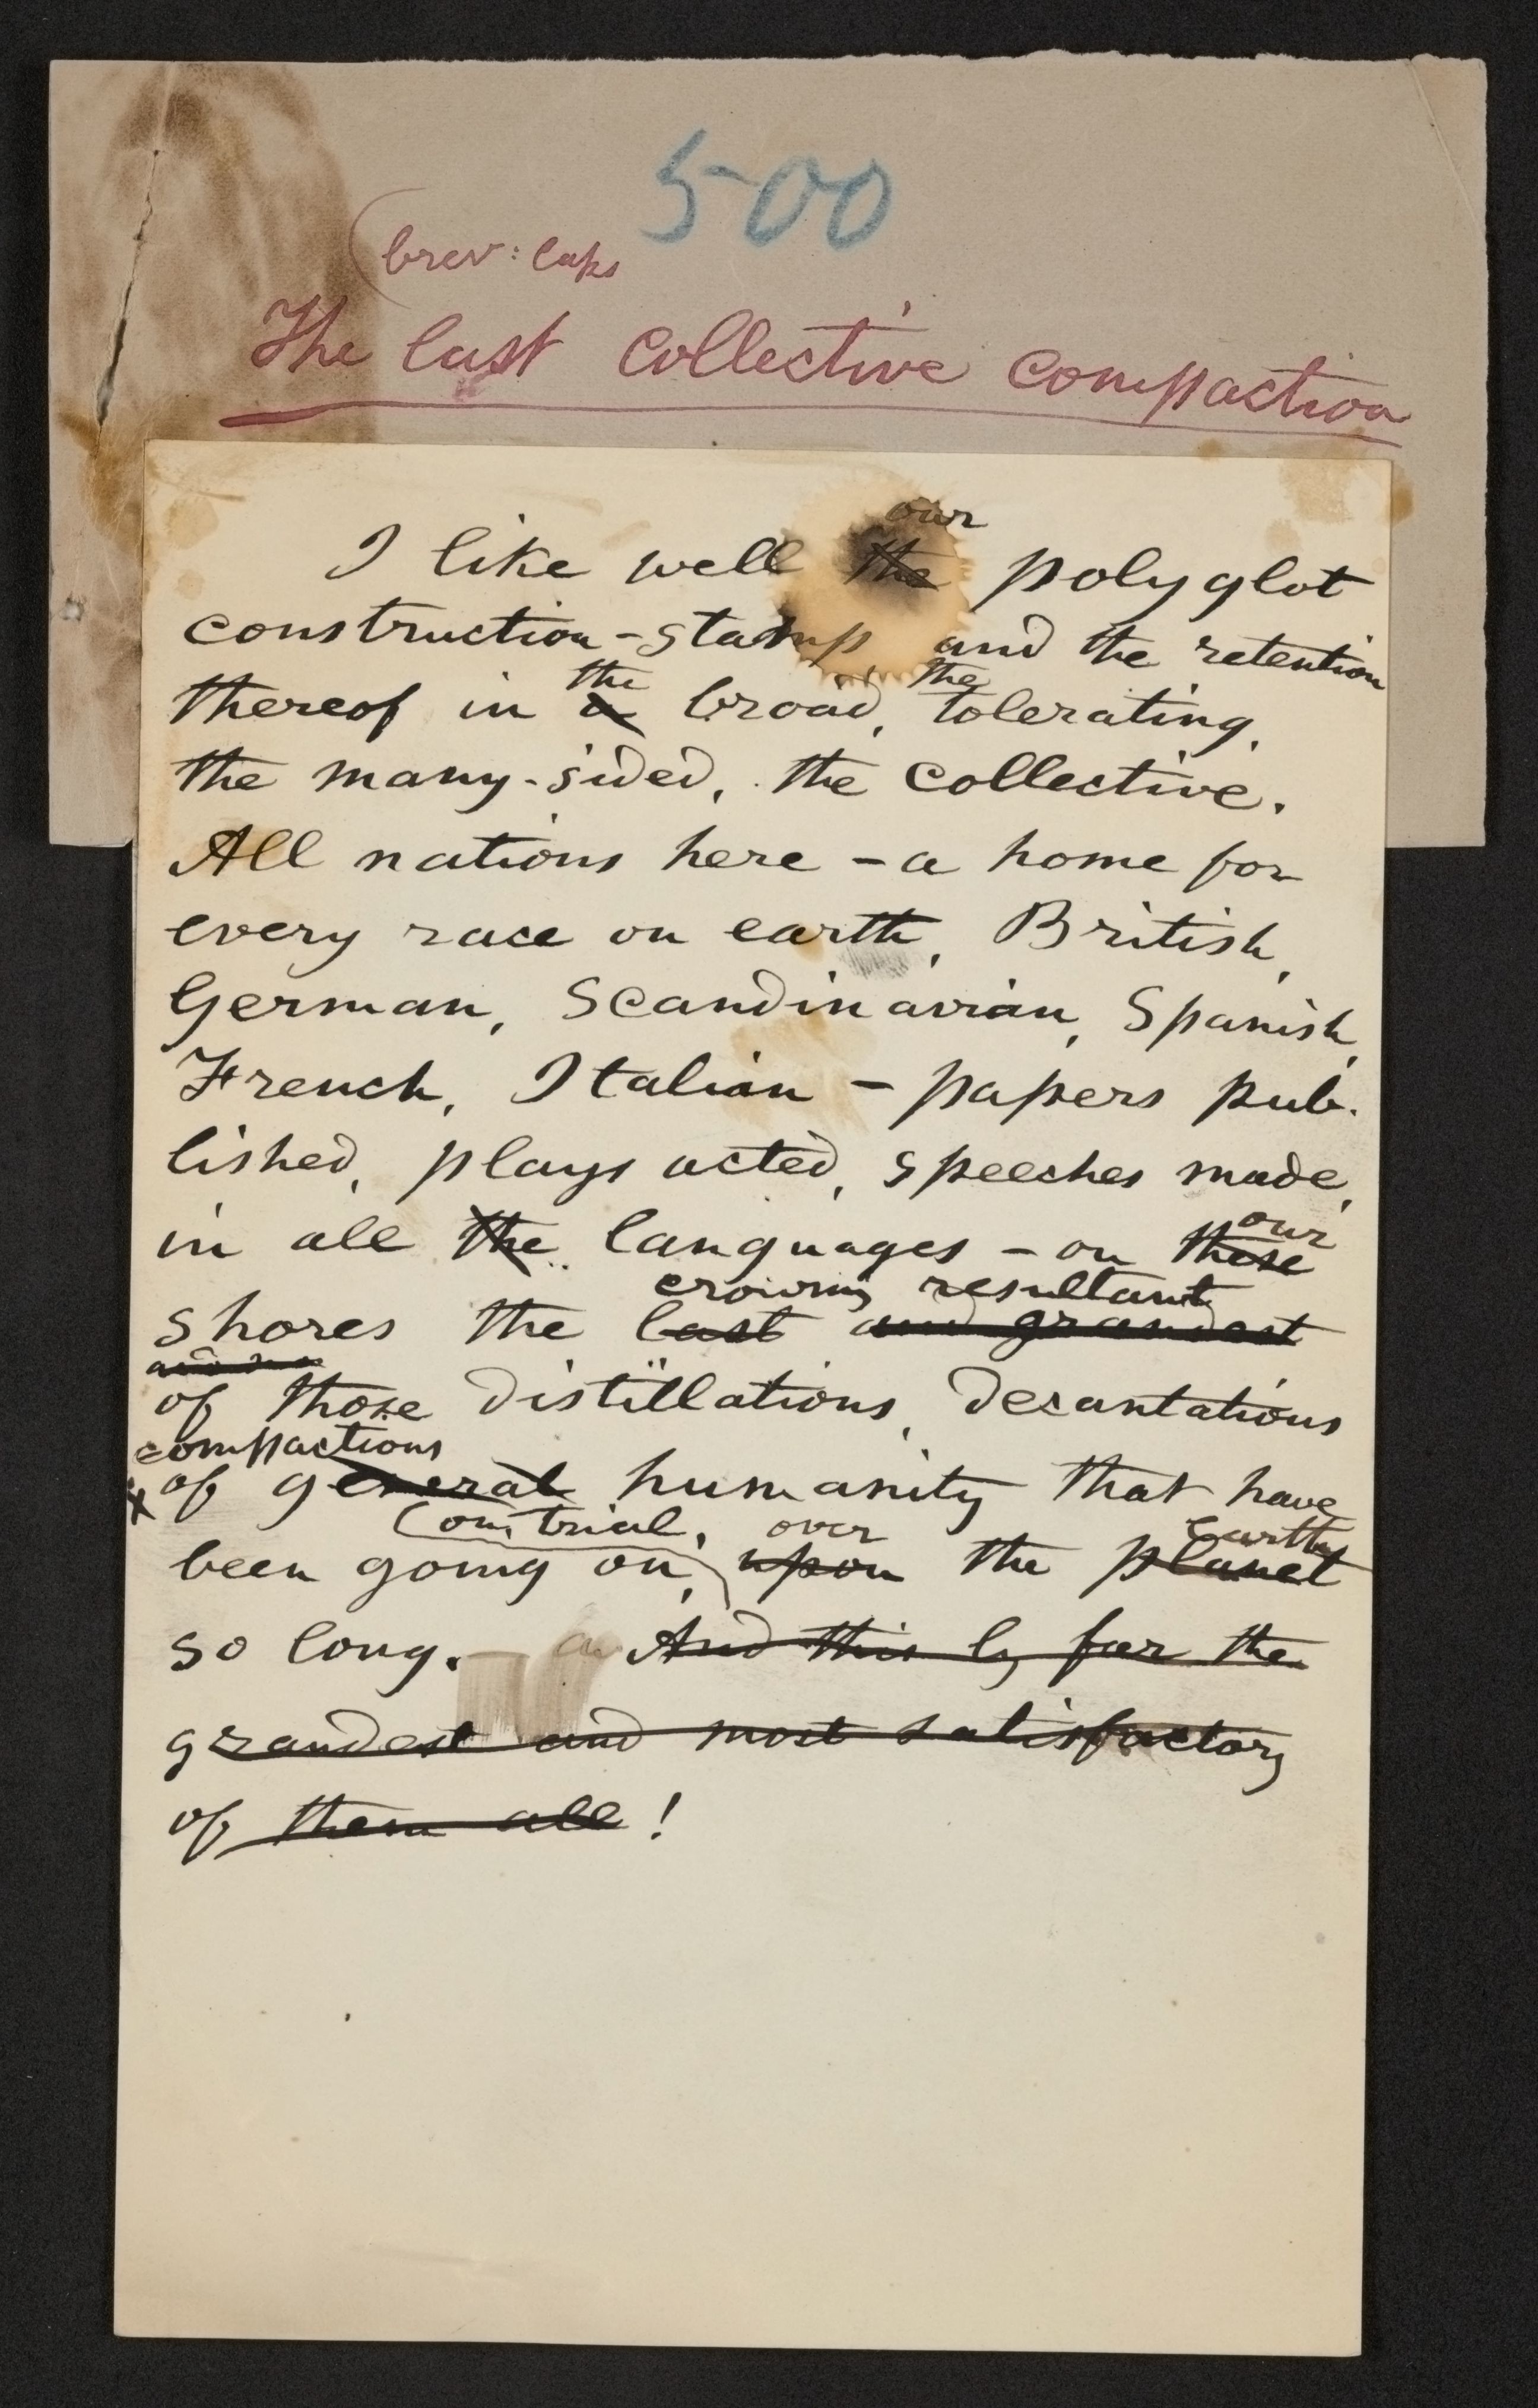 500
(brev: caps
The last collective compaction
our
I like well the polyglot
construction-stamp and the retention
the the
thereof in a broad, tolerating,
the many-sided, the collective.
All nations here - a home for
every race on earth, British,
German, Scandinavian, Spanish,
French, Italian - papers pub-
lished, plays acted, speeches made,
in all the languages - on these
our
crowning resultant
shores the last and grandest
of those distillations, decantations
compactions
of general humanity that have
(on trial, over earth
been going on, upon the planet
so long. a And this by far the
grandest and most satisfactory
of them all!